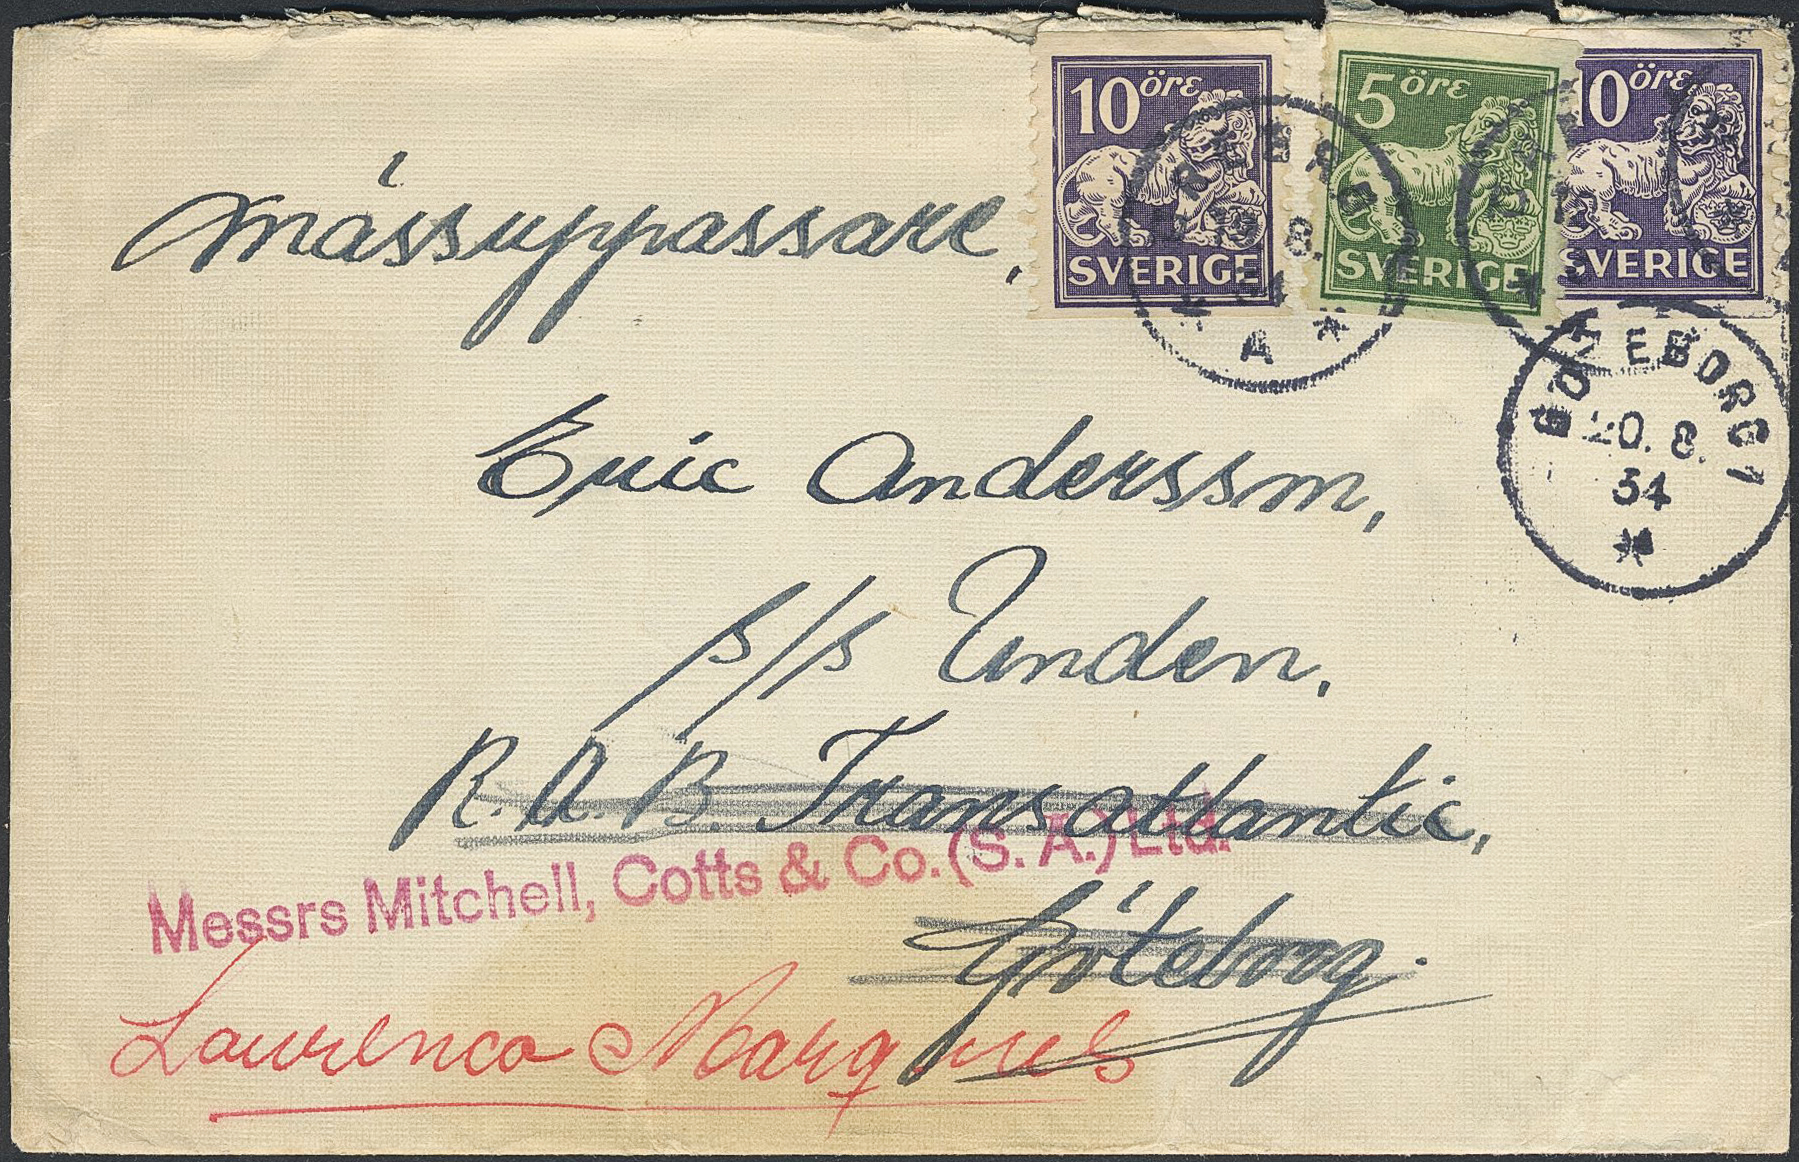 10 öre
SVERIGE
5 öre
SVERIGE
10 öre
SVERIGE
A
GÖTEBORG 1
20. 8.
34
Mässuppassare,
Eric Andersson,
s/s Unden,
R.A.B. Transatlantic,
Messrs Mitchell, Cotts & Co. (S. A.) Ltd.
Göteborg.
Laurenco Marques